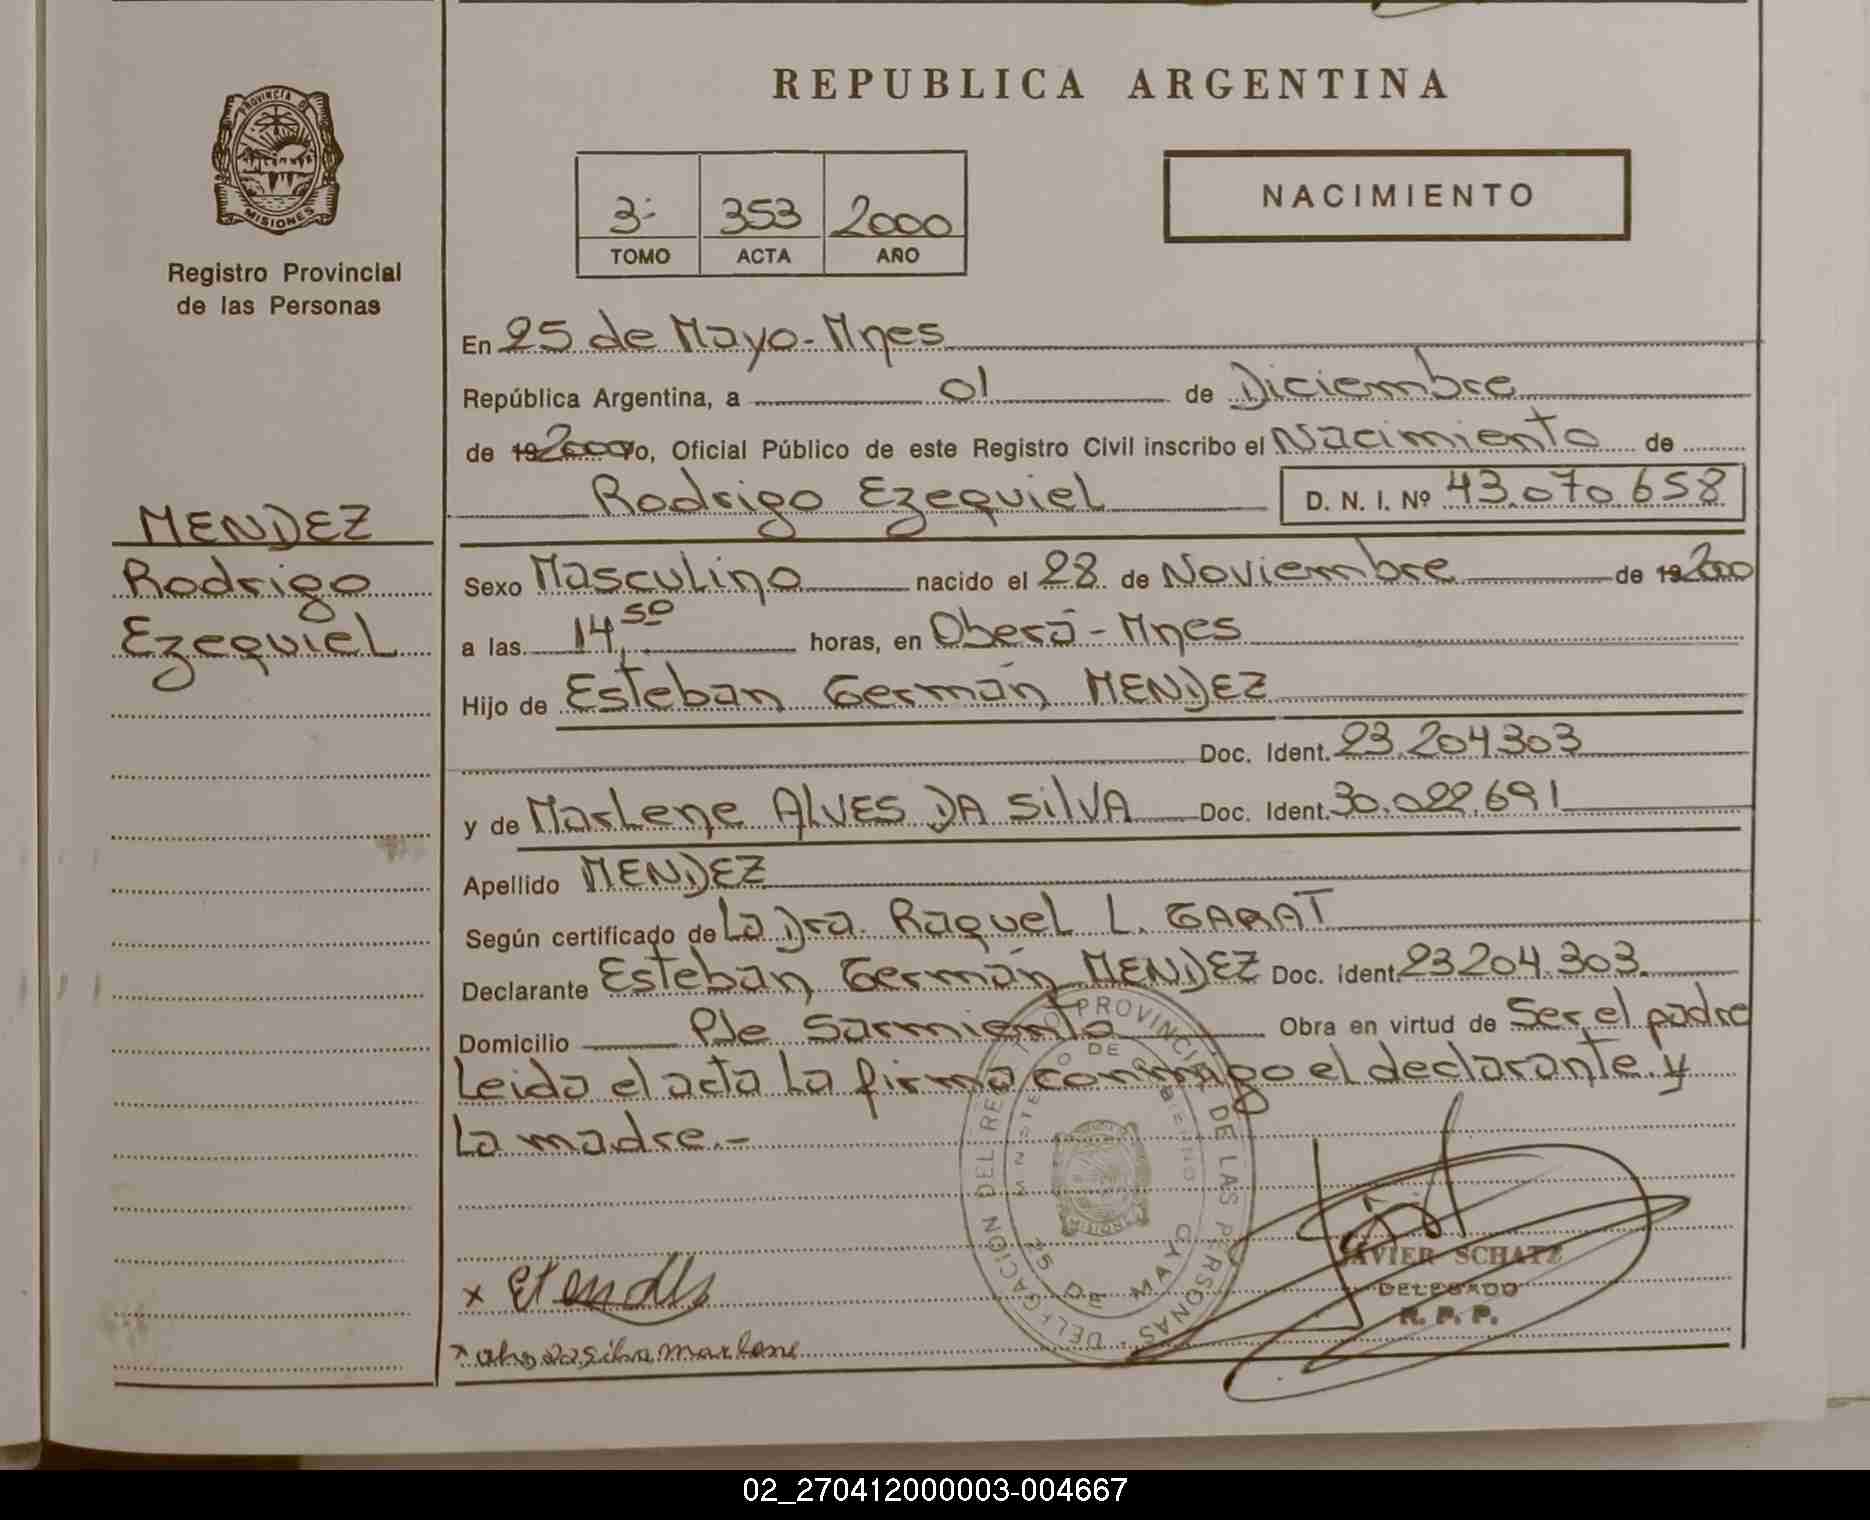 PROVINCIA DE
MISIONES
Registro Provincial
de las Personas
MENDEZ
Rodrigo
Ezequiel
REPUBLICA ARGENTINA
3- 353 2000
TOMO ACTA AÑO
NACIMIENTO
En 25 de Mayo-Mnes
República Argentina, a 01 de Diciembre
de 19 2000 yo, Oficial Público de este Registro Civil inscribo el Nacimiento de
Rodrigo Ezequiel D. N. I. Nº 43.070.658
Sexo Masculino nacido el 28 de Noviembre de 19 2000
a las 14,50 horas, en Oberá-Mnes
Hijo de Esteban Germán MENDEZ
Doc. Ident. 23.204.303
y de Marlene ALVES DA SilVA Doc. Ident. 30.022.691
Apellido MENDEZ
Según certificado de La Dra. Raquel L. GARAT
Declarante Esteban Germán MENDEZ Doc. ident. 23204.303.
Domicilio Pje Sarmiento Obra en virtud de Ser el padre
Leida el acta La firma conmigo el declarante y
La madre.-
DELEGACION DEL REGISTRO PROVINCIAL DE LAS PERSONAS
MINISTERIO DE GOBIERNO
25 DE MAYO
JAVIER SCHATZ
DELEGADO
R. P. P.
x EMendez
x da silva marlene
02_270412000003-004667